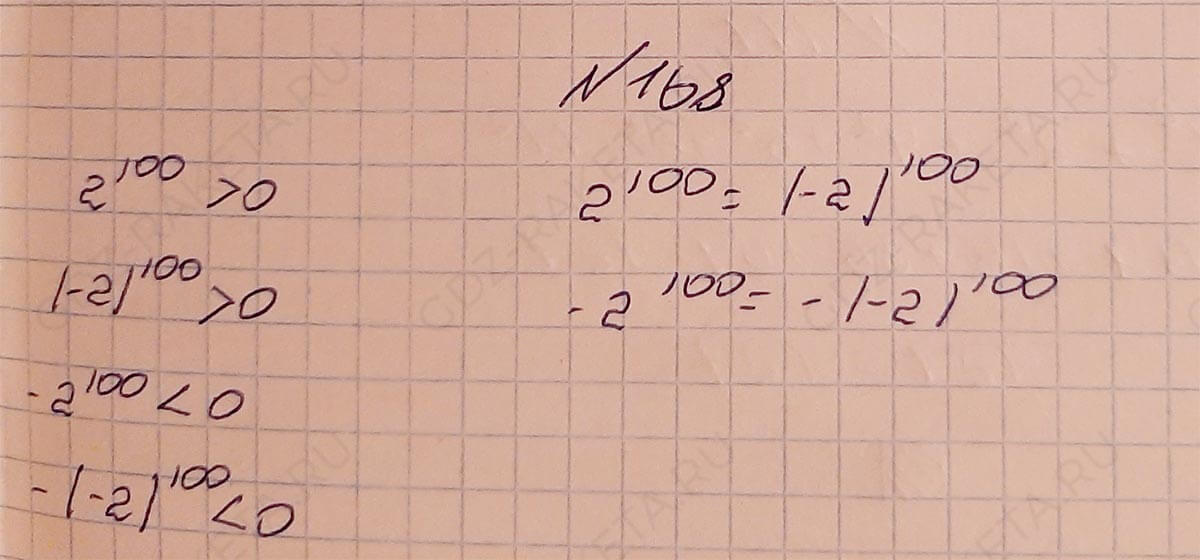 N168
2^100 > 0
(-2)^100 > 0
-2^100 < 0
-(-2)^100 < 0
2^100 = (-2)^100
-2^100 = -(-2)^100
GDZ-RAKETA.RU